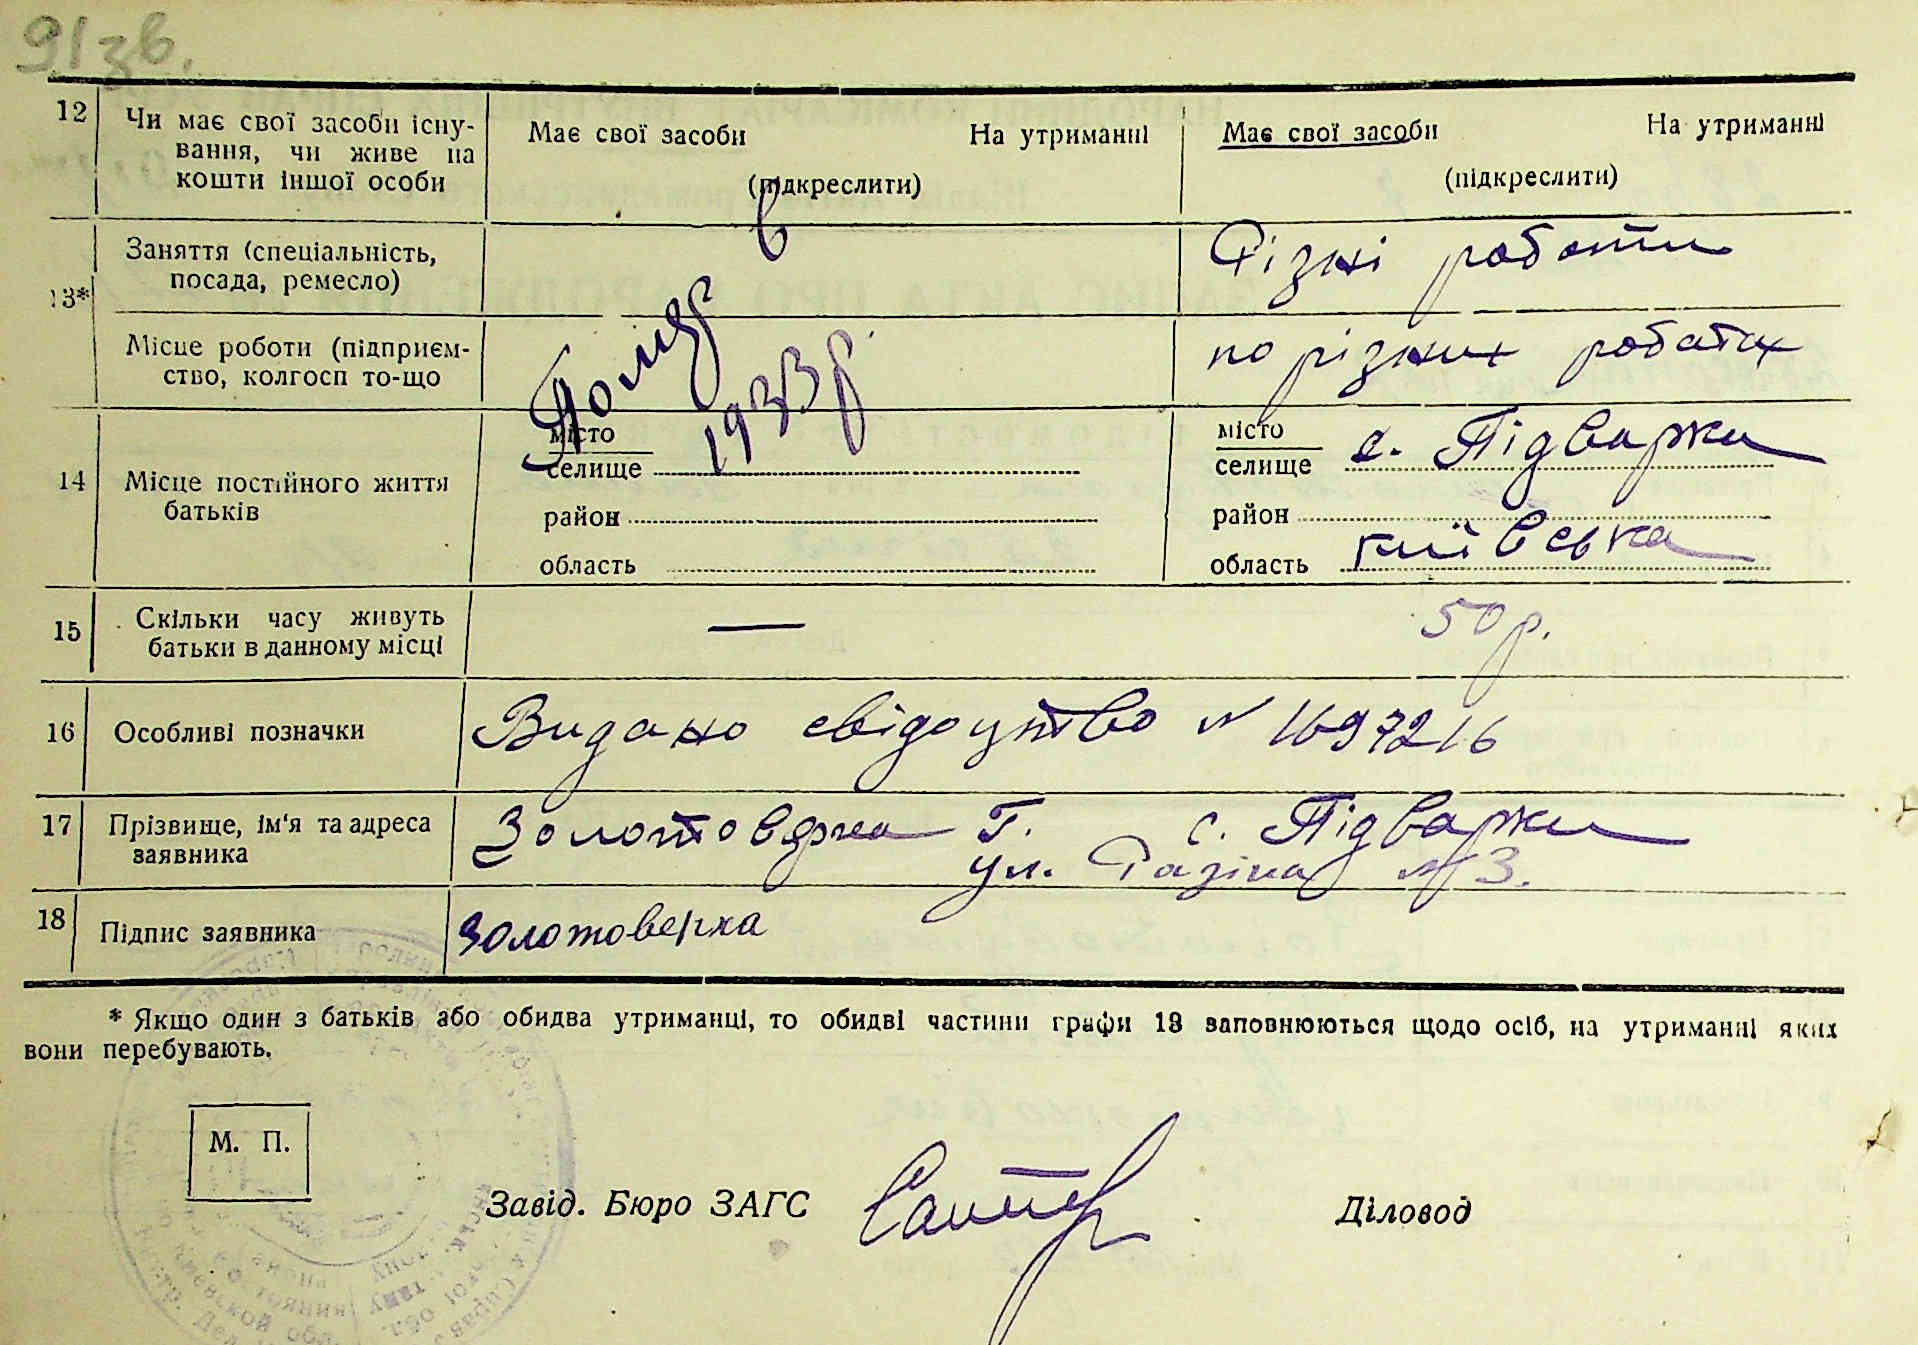 91зв.
12 Чи має свої засоби існу-
вання, чи живе на
кошти іншої особи
Має свої засоби На утриманні
(підкреслити)
Має свої засоби На утриманні
(підкреслити)
13*
Заняття (спеціальність,
посада, ремесло)
Різні роботи
Місце роботи (підприєм-
ство, колгосп то-що
по різних роботах
Помер в
1933 р.
14 Місце постійного життя
батьків
місто
селище
район
область
місто
селище с. Підварки
район
область київська
15 Скільки часу живуть
батьки в данному місці
— 50 р.
16 Особливі позначки
Видано свідоцтво № 1697216
17 Прізвище, ім'я та адреса
заявника
Золотоверха Г. с. Підварки
ул. Разіна № 3.
18 Підпис заявника
Золотоверха
* Якщо один з батьків або обидва утриманці, то обидві частини графи 13 заповнюються щодо осіб, на утриманні яких
вони перебувають.
М. П.
Завід. Бюро ЗАГС
Діловод